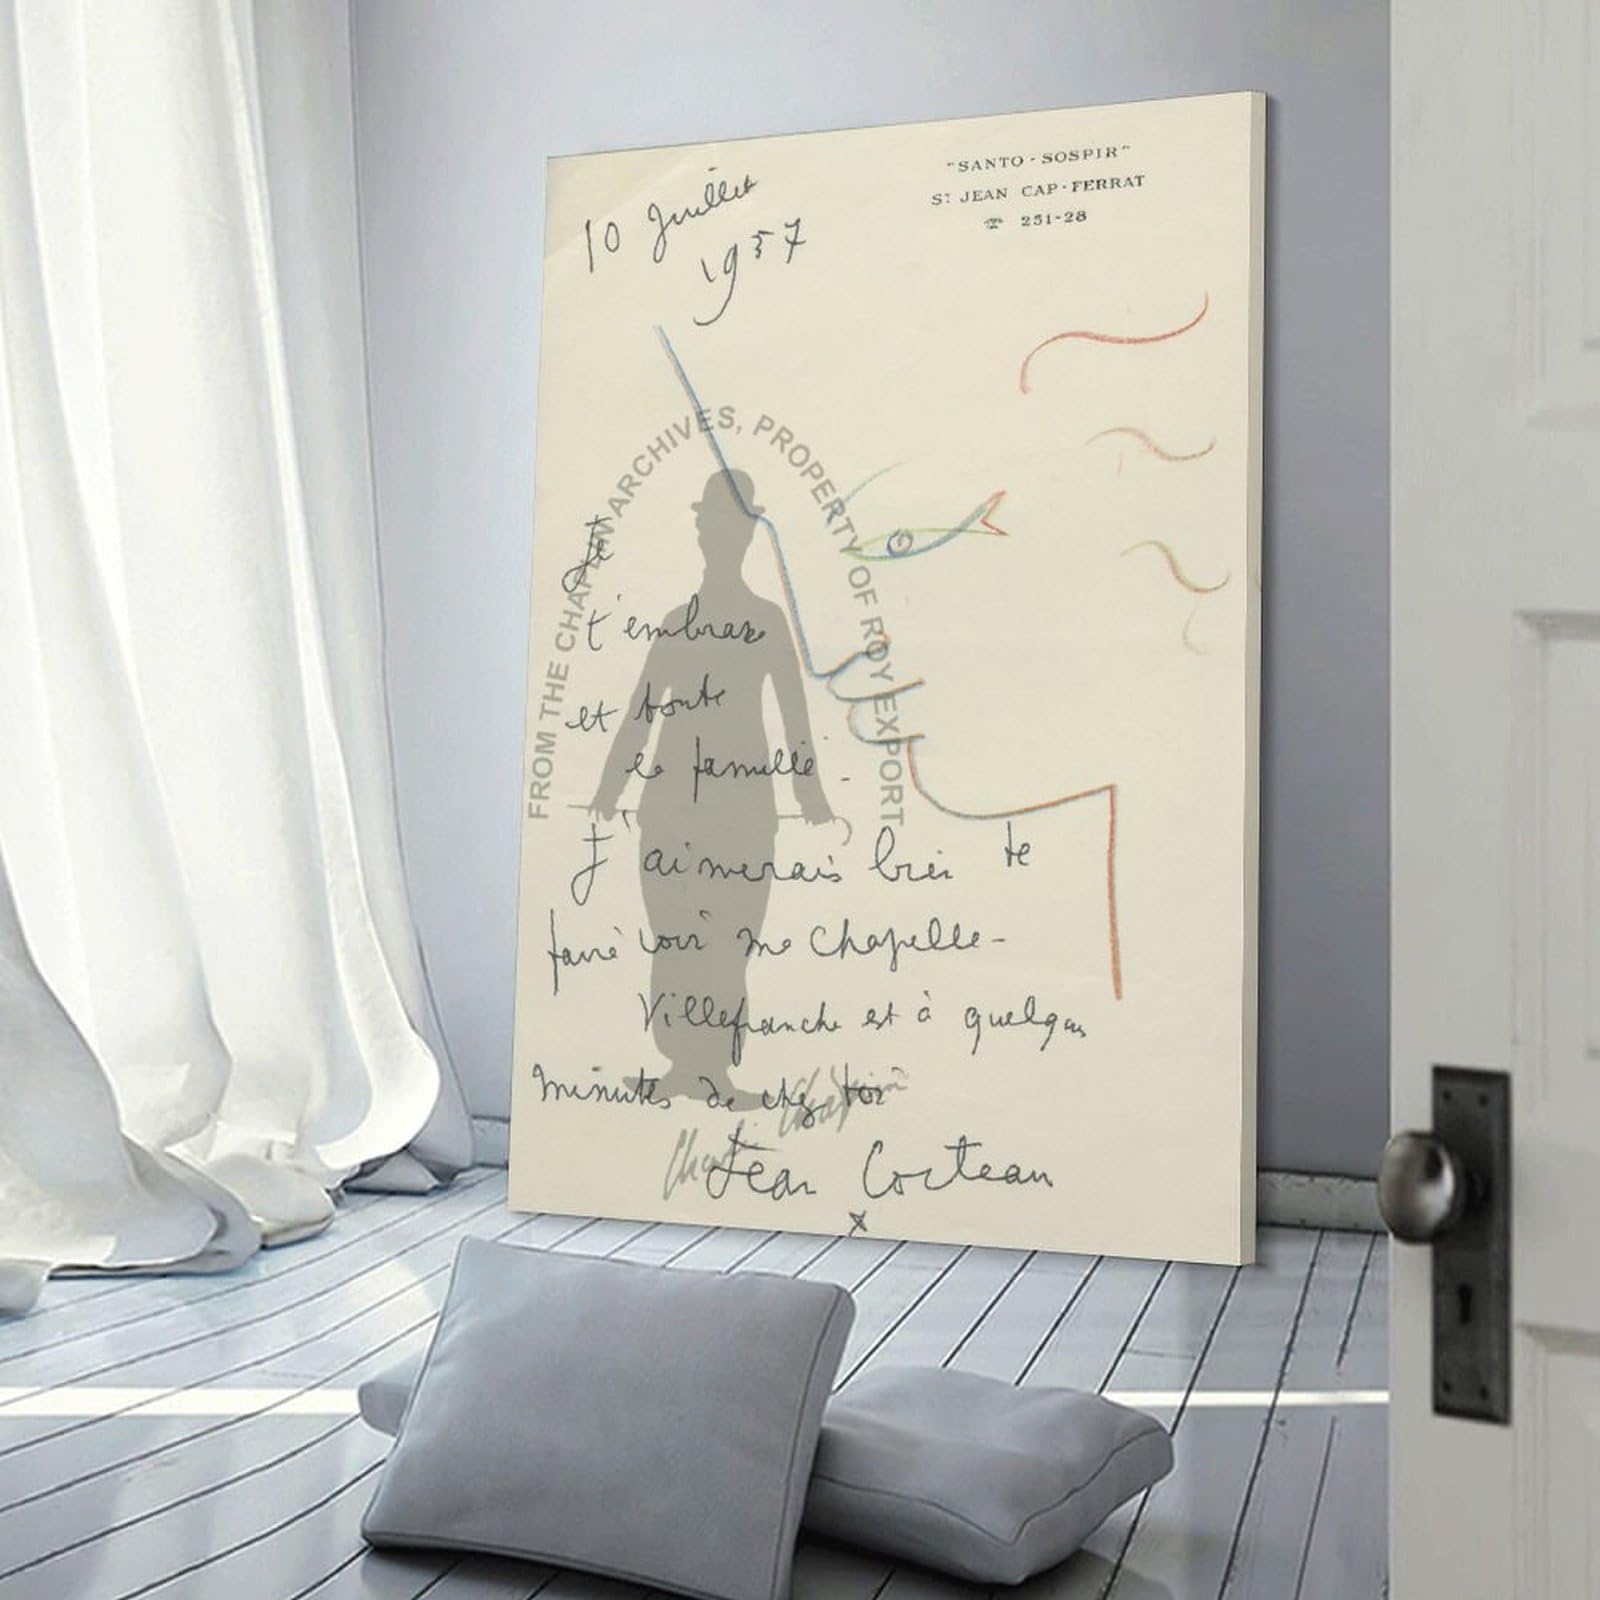 10 Juillet
1957
"SANTO-SOSPIR"
St JEAN CAP-FERRAT
☎ 251-28
FROM THE CHAPLIN ARCHIVES, PROPERTY OF ROY EXPORT
Je
t'embrasse
et toute
la famille.
J'aimerais bien te
faire voir ma chapelle-
Villefranche est à quelques
minutes de chez toi
Jean Cocteau